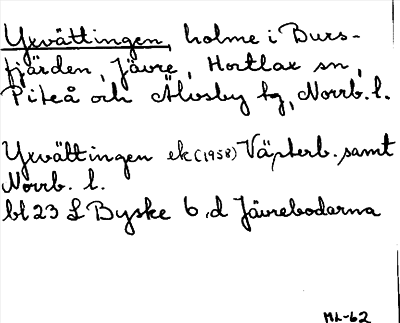 Yxvättingen, holme i Burs-
fjärden, Jävre, Hortlax sn,
Piteå och Älvsby tg, Norrb. l.
Yxvättingen ek (1958) Västerb. samt
Norrb. l.
bl 23 L Byske 6 d Jävrebodarna
ML-62